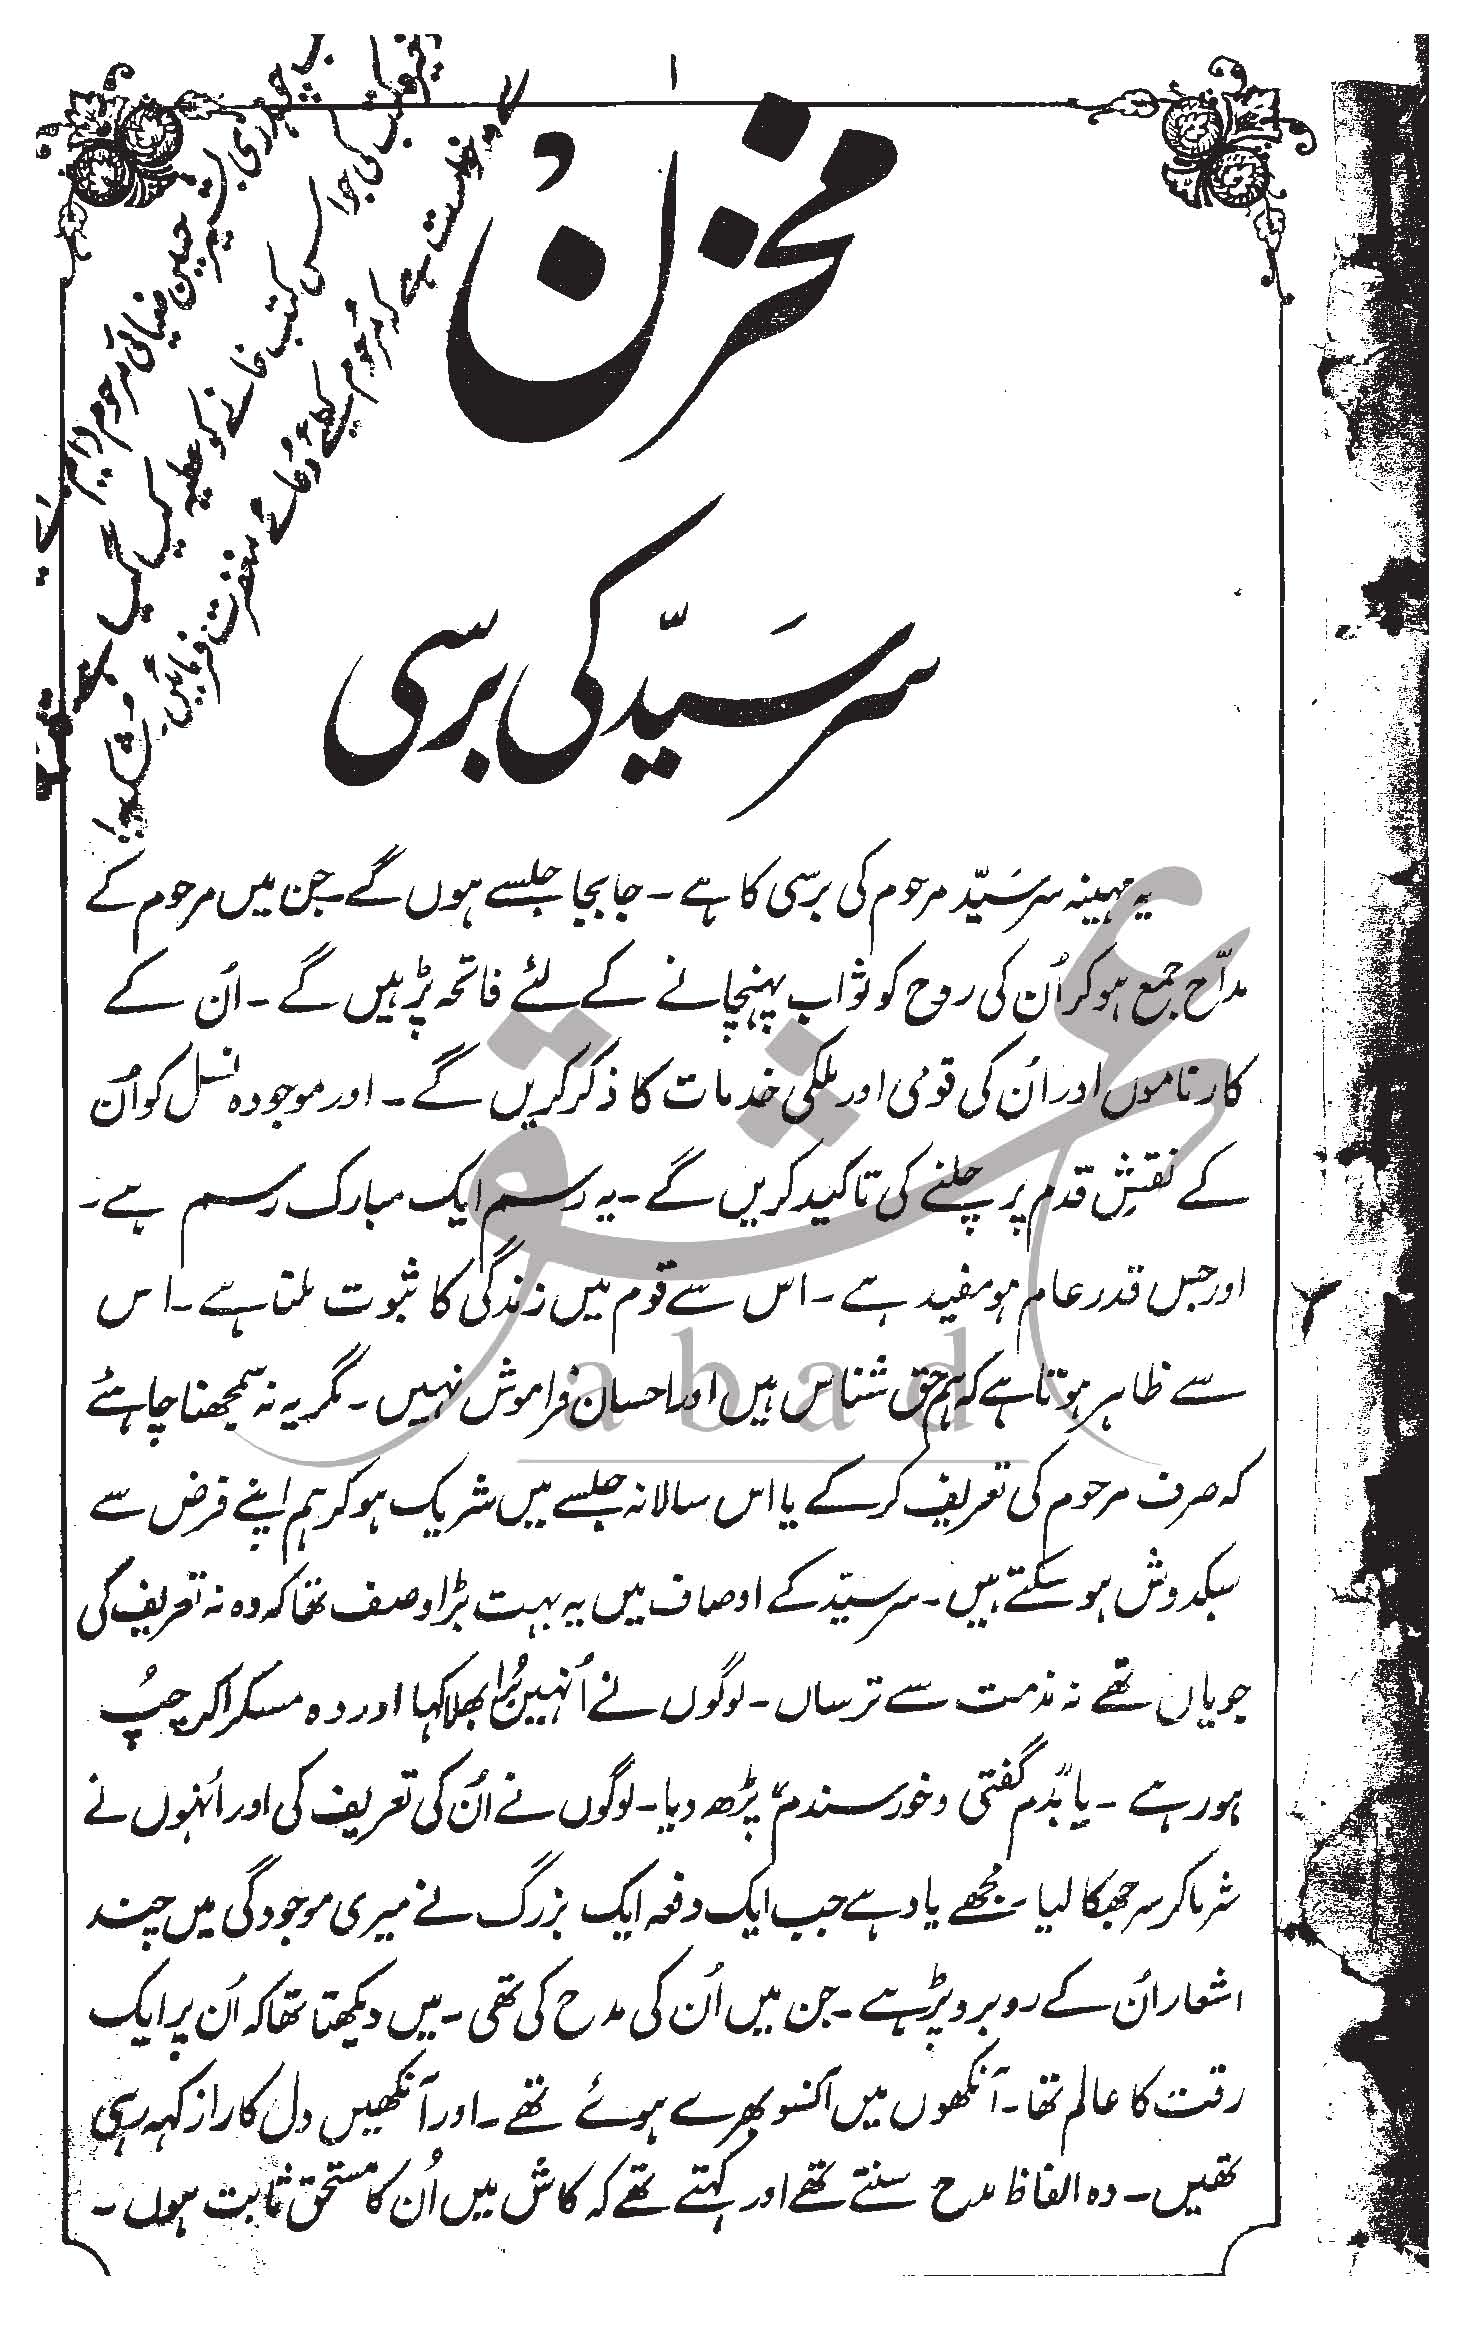 ۱
مخزن
سرسَیّد کی برسی
یہ مہینہ سرسَیّد مرحوم کی برسی کا ہے ۔ جابجا جلسے ہوں گے۔ جن میں مرحوم کے
مدّاح جمع ہوکر اُن کی روح کو ثواب پہنچانے کے لئے فاتحہ پڑہیں گے ۔ اُن کے
کارناموں اور اُن کی قومی اور ملکی خدمات کا ذکر کریں گے ۔ اور موجودہ نسل کو اُن
کے نقشِ قدم پر چلنے کی تاکید کریں گے ۔ یہ رسم ایک مبارک رسم ہے ۔
اور جس قدر عام ہو مفید ہے ۔ اس سے قوم میں زندگی کا ثبوت ملتا ہے ۔ اس
سے ظاہر ہوتا ہے کہ ہم حق شناس ہیں اور احسان فراموش نہیں ۔ مگر یہ نہ سمجھنا چاہئے
کہ صرف مرحوم کی تعریف کرکے یا اس سالانہ جلسے میں شریک ہوکر ہم اپنے فرض سے
سبکدوش ہو سکتے ہیں ۔ سرسیّد کے اوصاف میں یہ بہت بڑا وصف تھا کہ وہ نہ تعریف کی
جویاں تھے نہ مذمت سے ترساں ۔ لوگوں نے اُنہیں بُرا بھلا کہا اور وہ مسکرا کر چپُ
ہو رہے ۔ یا "بَدم گفتی و خورسندم" پڑھ دیا ۔ لوگوں نے اُن کی تعریف کی اور اُنہوں نے
شرماکر سر جھکا لیا ۔ مُجھے یاد ہے جب ایک دفعہ ایک بزرگ نے میری موجودگی میں چند
اشعار اُن کے روبرو پڑہے ۔ جن میں اُن کی مدح کی تھی ۔ میں دیکھتا تھا کہ اُن پر ایک
رقت کا عالم تھا ۔ آنکھوں میں آنسو بھرے ہوئے تھے ۔ اور آنکھیں دل کا راز کہہ رہی
تھیں ۔ وہ الفاظ مدح سنتے تھے اور کہتے تھے کہ کاش میں اُن کا مستحق ثابت ہوں ۔
چوہدری بشیر حسین ضیائی مرحوم
کتب کی جو اس کتب خانے کو عطیہ کیا گیا ہے
درخواست ہے کہ مرحوم کیلئے دُعائے مغفرت فرمائیں۔
عشق
abad